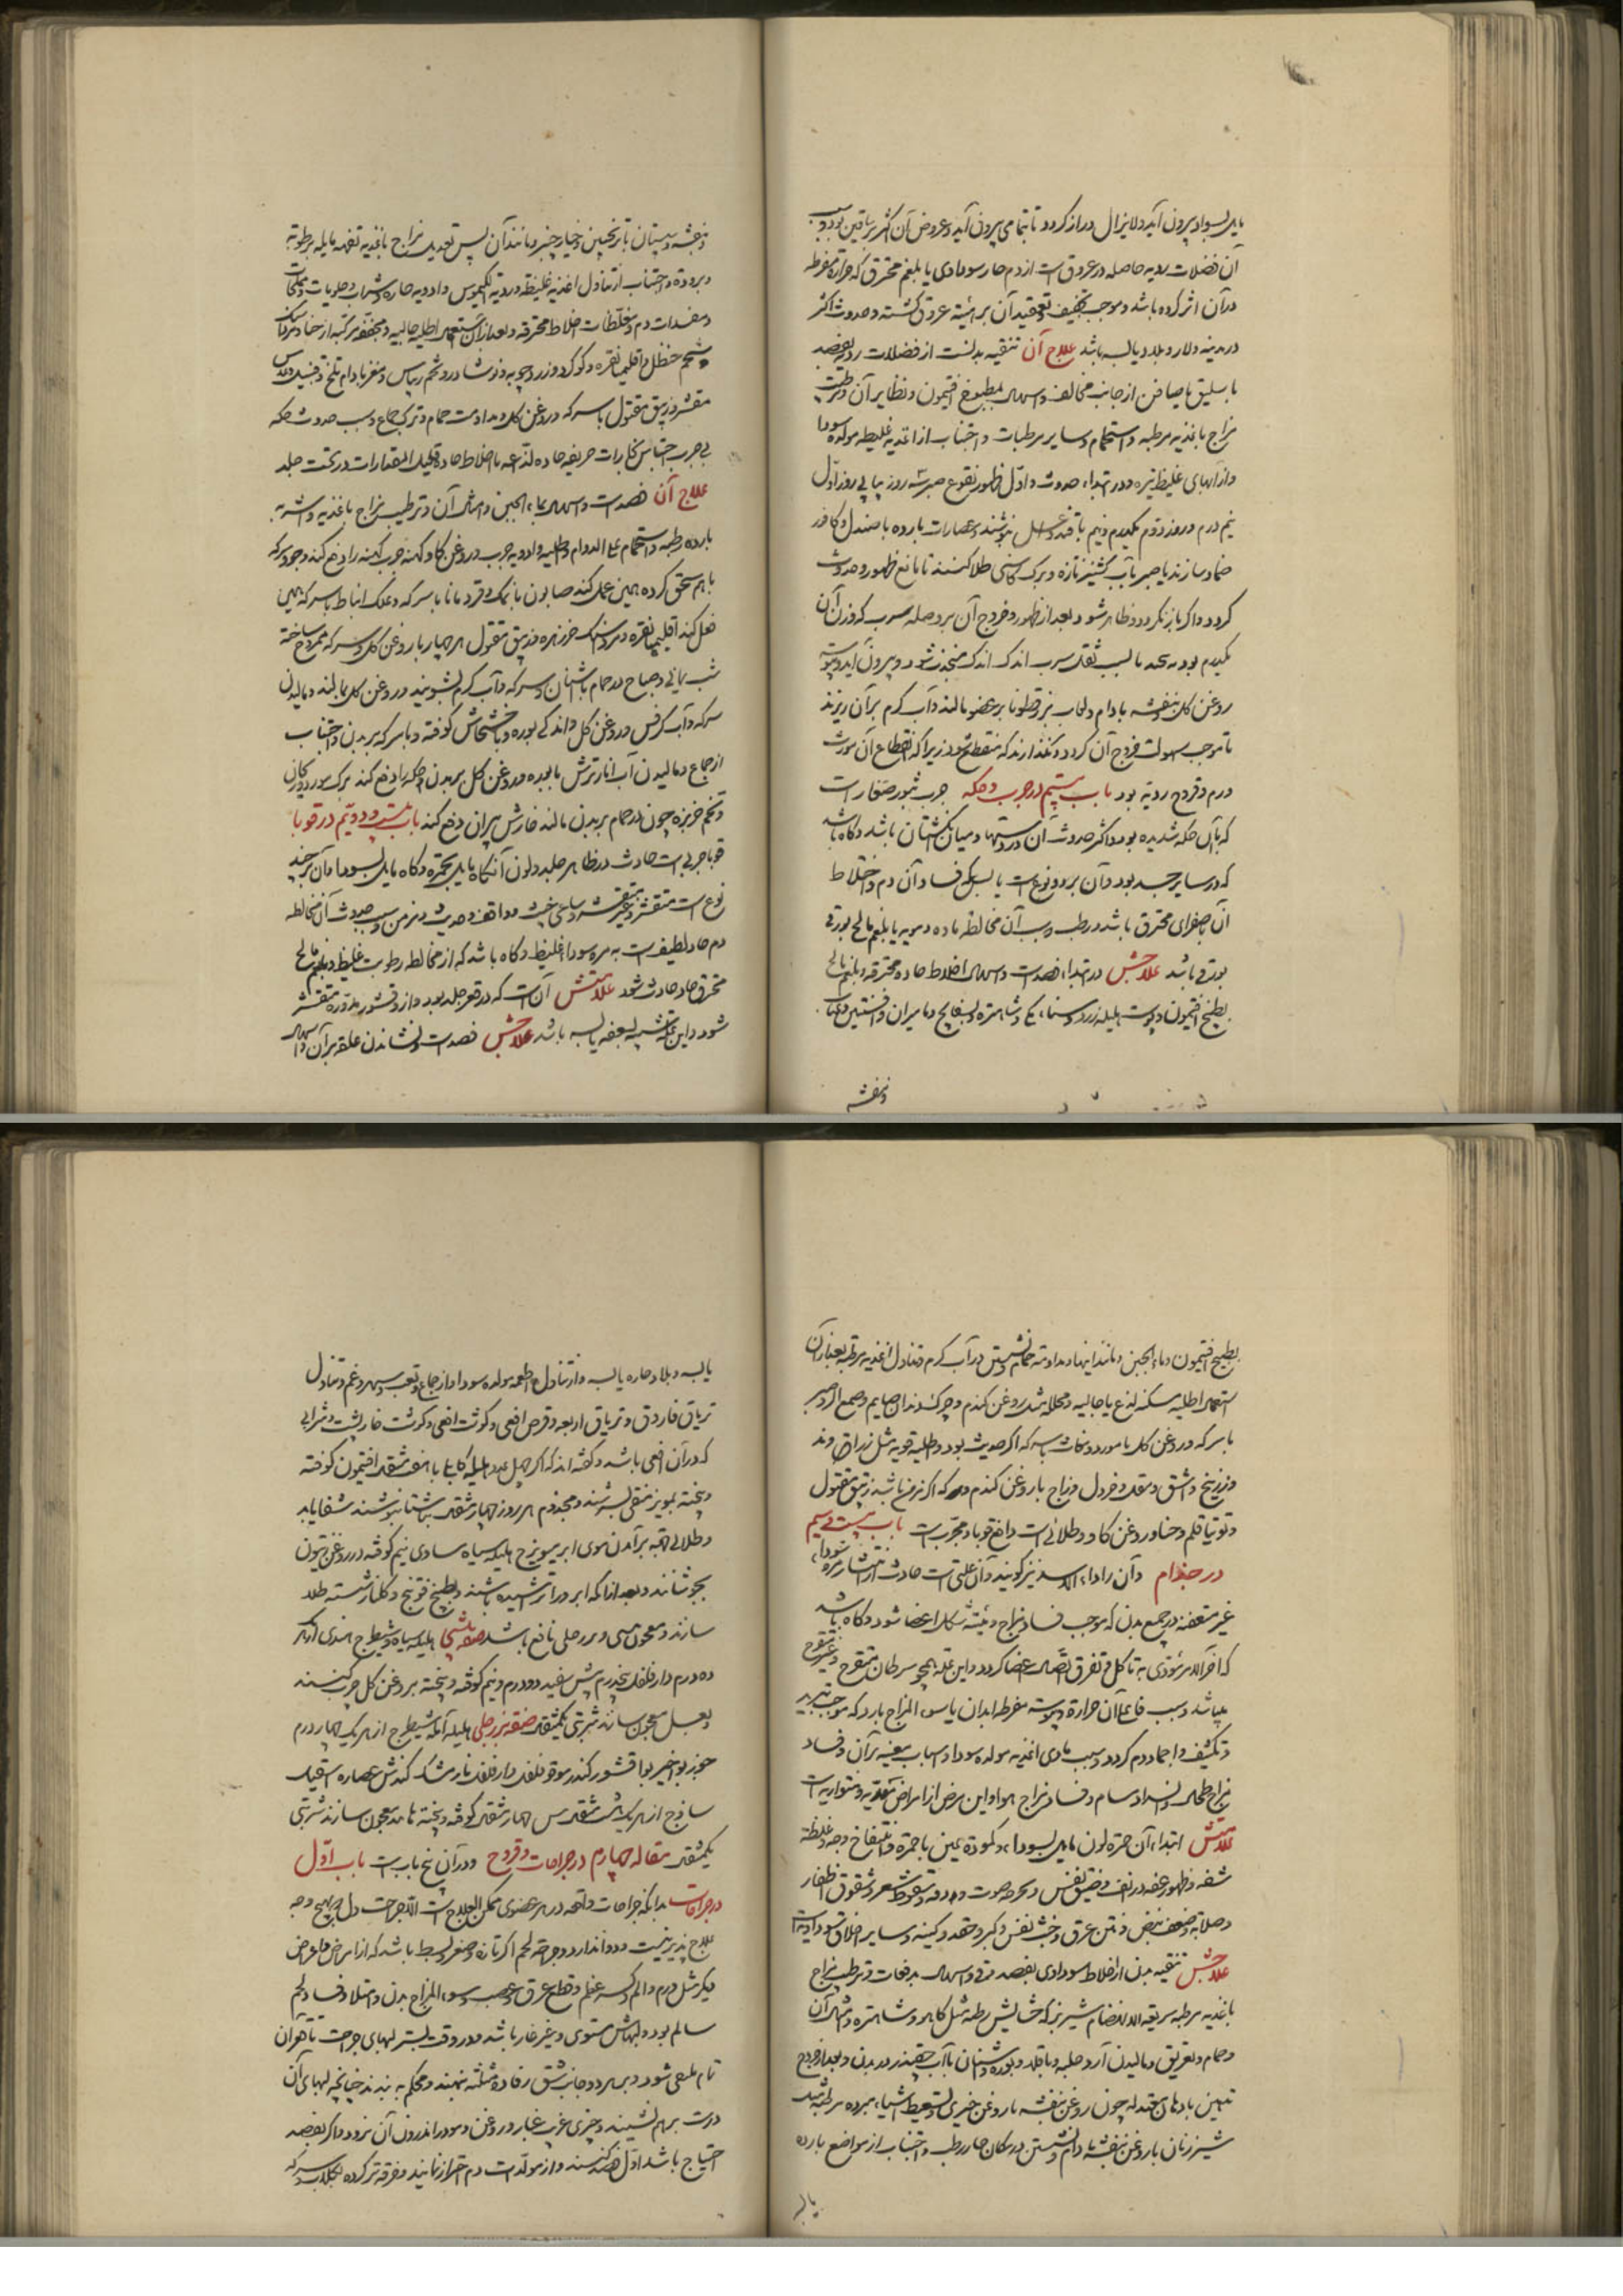 مایل بسواد بیرون آید و لایزال دراز گردد تا بتمامی بیرون آید و عروض آن اکثر بر ساقین بود و سبب
آن فضلات ردیه حاصله در عروق است از دم حار سوداوی یا بلغم محترق که حرارة مفرطه
در آن اثر کرده باشد و موجب تجفیف و تعقید آن بر هیئة عروق گشته و حدوث اکثر
در مدینه و بلاد یابسه باشد علاج آن تنقیه بدنست از فضلات ردیه بفصد
باسلیق یا صافن از جانب مخالف و اسهال بمطبوخ افتیمون و نظایر آن و ترطیب
مزاج باغذیه مرطبه و استحمام و سایر مرطبات و اجتناب از اغذیه غلیظه مولده سودا
و از آبهای غلیظ تیره و در ابتداء حدوث و اول ظهور نقوع صبر سه روز پیاپی روز اول
نیم درم و روز دوم یکدرم و نیم با قند و عسل بنوشند و عصارات بارده با صندل و کافور
ضماد سازند یا صبر بآب گشنیز تازه و برگ کاسنی طلا کنند تا مانع ظهور و حدوث
گردد و اگر باز نگردد و ظاهر شود بعد از ظهور و خروج آن بر وصله سرب که وزن آن
یکدرم بود به پیچند تا بسبب ثقل سرب اندک اندک منجذب شود و بیرون آید و پیوسته
روغن گل و بنفشه و بادام و لعاب بزرقطونا بر عضو مالند و آب گرم بر آن ریزند
تا موجب سهولت خروج آن گردد و نگذارند که منقطع شود زیرا که انقطاع آن مورث
ورم و قروح ردیه بود باب بیستم در جرب و حکه جرب بثور صغار است
که با آن حکه شدیده بود و اکثر حدوث آن در دستها و میان انگشتان باشد و گاه باشد
که در سایر جسد بود و آن بر دو نوع است یابس که فساد آن دم و اختلاط
آن بصفرای محترق باشد و رطب و سبب آن مخالطه ماده دمویه با بلغم مالح بورقی
بورقی باشد علاجش در ابتداء فصد است و اسهال اخلاط حاده محترقه و بلغم مالح
بطبخ افتیمون و پوست هلیله زرد و سناء مکی و شاهتره و بسفایج و مامیران و افسنتین و عناب
و بنفشه
و بنفشه و سپستان با ترنجبین و خیارچنبر و مانند آن پس تعدیل مزاج باغذیه تفهه مایله برطوبة
و برودة و اجتناب از تناول اغذیه غلیظه و ردیة الکیموس و ادویه حاره و شراب و حلویات و مملحات
و مفسدات دم و مغلظات اخلاط محترقه و بعد از آن استعمال اطلیه جالیه و مجففه مرکبه از حنا و مرداسنگ
و شحم حنظل و اقلیما نقره و گوگرد و زردچوبه و نوشادر و تخم ریباس و مغز بادام تلخ و قنبیل و عدس
مقشر و زیبق مقتول با سرکه و روغن گل و مداومت حمام و ترک جماع و سبب حدوث حکه
بی جرب احتباس بخارات حریفه حاده لذاعه یا اخلاط حاده قلیل المقدارات در تحت جلد
علاج آن فصد است و اسهال بماء الجبن و امثال آن و ترطیب مزاج باغذیه و اشربه
بارده رطبه و استحمام علی الدوام و اطلیه و ادویه جرب و روغن گاو کهنه جرب کهنه را دفع کند و جو و سرکه
باهم سحق کرده همین عمل کند صابون با نمک و قردمانا با سرکه و علک انباط با سرکه همین
فعل کند اقلیما نقره و مرداسنگ خرزهره و زیبق مقتول هر چهار با روغن گل و سرکه ممزوج ساخته
شب بمالی و صباح در حمام باشنان و سرکه و آب گرم بشویند و روغن گل بمالند و مالیدن
سرکه و آب کرفس و روغن گل و اندکی بوره و یا خشخاش کوفته و با سرکه بر بدن و اجتناب
از جماع و مالیدن آب انار ترش با بوره و روغن گل بر بدن حکه را دفع کند برگ مورد و کازران
و تخم خربزه چون در حمام بر بدن مالند خارش پیران دفع کند باب بیست و دویم در قوبا
قوبا جربی است حادث در ظاهر جلد و لون آن گاه مایل بحمره و گاه مایل بسواد و آن بر چند
نوع است متقشر و غیر متقشر و ساعی خبیث و واقف و حدیث و مزمن و سبب حدوث آن مخالطه
دم حاد لطیف است به مره سوداء غلیظ و گاه باشد که از مخالطه رطوبت غلیظ و بلغم مالح
محترق حاد حادث شود علامتش آن است که در قعر جلد بود و از او قشور مدوره متقشر
شود و این علت شبیه بسعفه یابسه باشد علاجش فصد است و نشاندن علقه بر آن و اسهال
بطبیخ افتیمون و ماء الجبن و مانند اینها و مداومة حمام و نشستن در آب گرم و تناول اغذیه مرطبه بعد از آن
استعمال اطلیه مسکنه لذع یا جالیه و محلله مثل روغن گندم و چرک دندان صایم و صمع آلو و صبر
با سرکه و روغن گل یا مورد و نخاست با سرکه اگر حدیث بود و اطلیه قویه مثل زراوند
و زرنیخ و اشق و مقل و خردل و زاج با روغن گندم و سرکه اگر مزمن باشد زیبق مقتول
و توتیا قلم و حنا و روغن گاو و طلائی است دافع قوبا و مجرب است باب بیست و سیم
در جذام و آن را داء الاسد نیز گویند و آن علتی است حادث از انتشار مره سوداء
غیر متعفنه در جمیع بدن که موجب فساد مزاج و هیئة شکل اعضا شود و گاه باشد
که آخر الامر مؤدی به تآکل و تفرق اتصال اعضا گردد و این علة همچو سرطان متقرح و غیر متقرح
میباشد و سبب فاعلی آن حرارة و یبوست مفرطه ابدان یا سوء المزاج بارد که موجب تبرید
و تکثیف و اجماد دم گردد و سبب مادی اغذیه مولده سودا و اسباب معینه بر آن و فساد
مزاج طحال و انسداد مسام و فساد مزاج هوا و این مرض از امراض متعدیه و متوارثه است
علامتش ابتداء آن حمرة لون مایل بسوداء و کمودة عین با حمرة و انتفاخ وجه و غلظة
شفه و ظهور عقد در انف و ضیق نفس و بحوحة صوت و دقة و سقوط شعر و شقوق اظفار
و صلابة و ضعف نبض و نتن عرق و خبث نفس و کبر و حقد و کینه و سایر اخلاق سوداویه است
علاجش تنقیه بدن از اخلاط سوداوی بفصد قوی و اسهال بدفعات و ترطیب مزاج
باغذیه مرطبه سریعة الانهضام شیر بز که حشایش رطبه مثل کاهو و شاهتره و امثال آن
و حمام و تعریق و مالیدن آرد حلبه و باقلا و بوره و اشنان باآب چغندر بر بدن و بعد از خروج
تدهین بادهان معتدله چون روغن بنفشه با روغن خیری و تسعیط اشیاء مبرده مرطبه مثل
شیر زنان با روغن بنفشه بادام و نشستن در مکان حار رطب و اجتناب از مواضع بارده
یابسه
یابسه و بلاد حاره یابسه و از تناول اطعمه مولده سودا و از جماع و تعب و سهر و غم و تناول
تریاق فاروق و تریاق اربعه و قرص افعی و گوشت افعی و گوشت خارپشت و شرابی
که در آن افعی باشد و گفته اند که اگر چهل عدد هلیله کابلی با هفت مثقال افتیمون کوفته
و بیخته بمویز منقی بسرشند و مجذوم هر روز چهار مثقال بناشتا بنوشند شفا یابد
و طلائی جهة برآمدن موی ابرو مویزج هلیله سیاه مساوی نیم کوفته در روغن زیتون
بجوشانند و بعد از آنکه ابرو را تراشیده باشند و بطبیخ فوتنج و گلنار شسته طلا
سازند و معجون بیشی و بزرجلی نافع باشد صفة بیشی هلیله سیاه و شیطرج هندی از هر یک
ده درم دارفلفل پنجدرم بیش سفید دو درم و نیم کوفته و بیخته بروغن گل چرب کنند
و بعسل معجون سازند شربتی یکمثقال صفة بزرجلی هلیله آمله شیطرج از هر یک چهار درم
جوز بوا خیربوا قشور کندر موقو فلفل دارفلفل نارمشک کندش عصاره اسقیل
ساذج از هر یک هشت مثقال بیش چهار مثقال کوفته و بیخته با معجون سازند شربتی
یکمثقال مقاله چهارم در جراحات و قروح و در آن پنج باب است باب اول
در جراحات بدانکه جراحات واقعه در هر عضوی ممکن العلاج است الا جراحت دل که بهیچ وجه
علاج پذیر نیست و دوا ندارد و جراحة لحم اگر تازه و صغیر و بسیط باشد که از امراض و اعراض
دیگر مثل ورم و الم و کسر عظم و قطع عرق و عصب و سوء المزاج بدن و امتلا و فساد لحم
سالم بود و لبهاش مستوی و غیر غایر باشد و در وقت بستن لبهای جراحت تا قعر آن
تمام ملتقی شود و بر هر دو جانب شق رفاده مثلثه نهند و محکم به بندند چنانچه لبهای آن
درست بر هم نشیند و چیزی غریب غبار و روغن و مو در اندرون آن نرود و اگر بفصد
احتیاج باشد اول فصد کنند و از مولدات دم احتراز نمایند و خرقه تر کرده بگلاب و سرکه